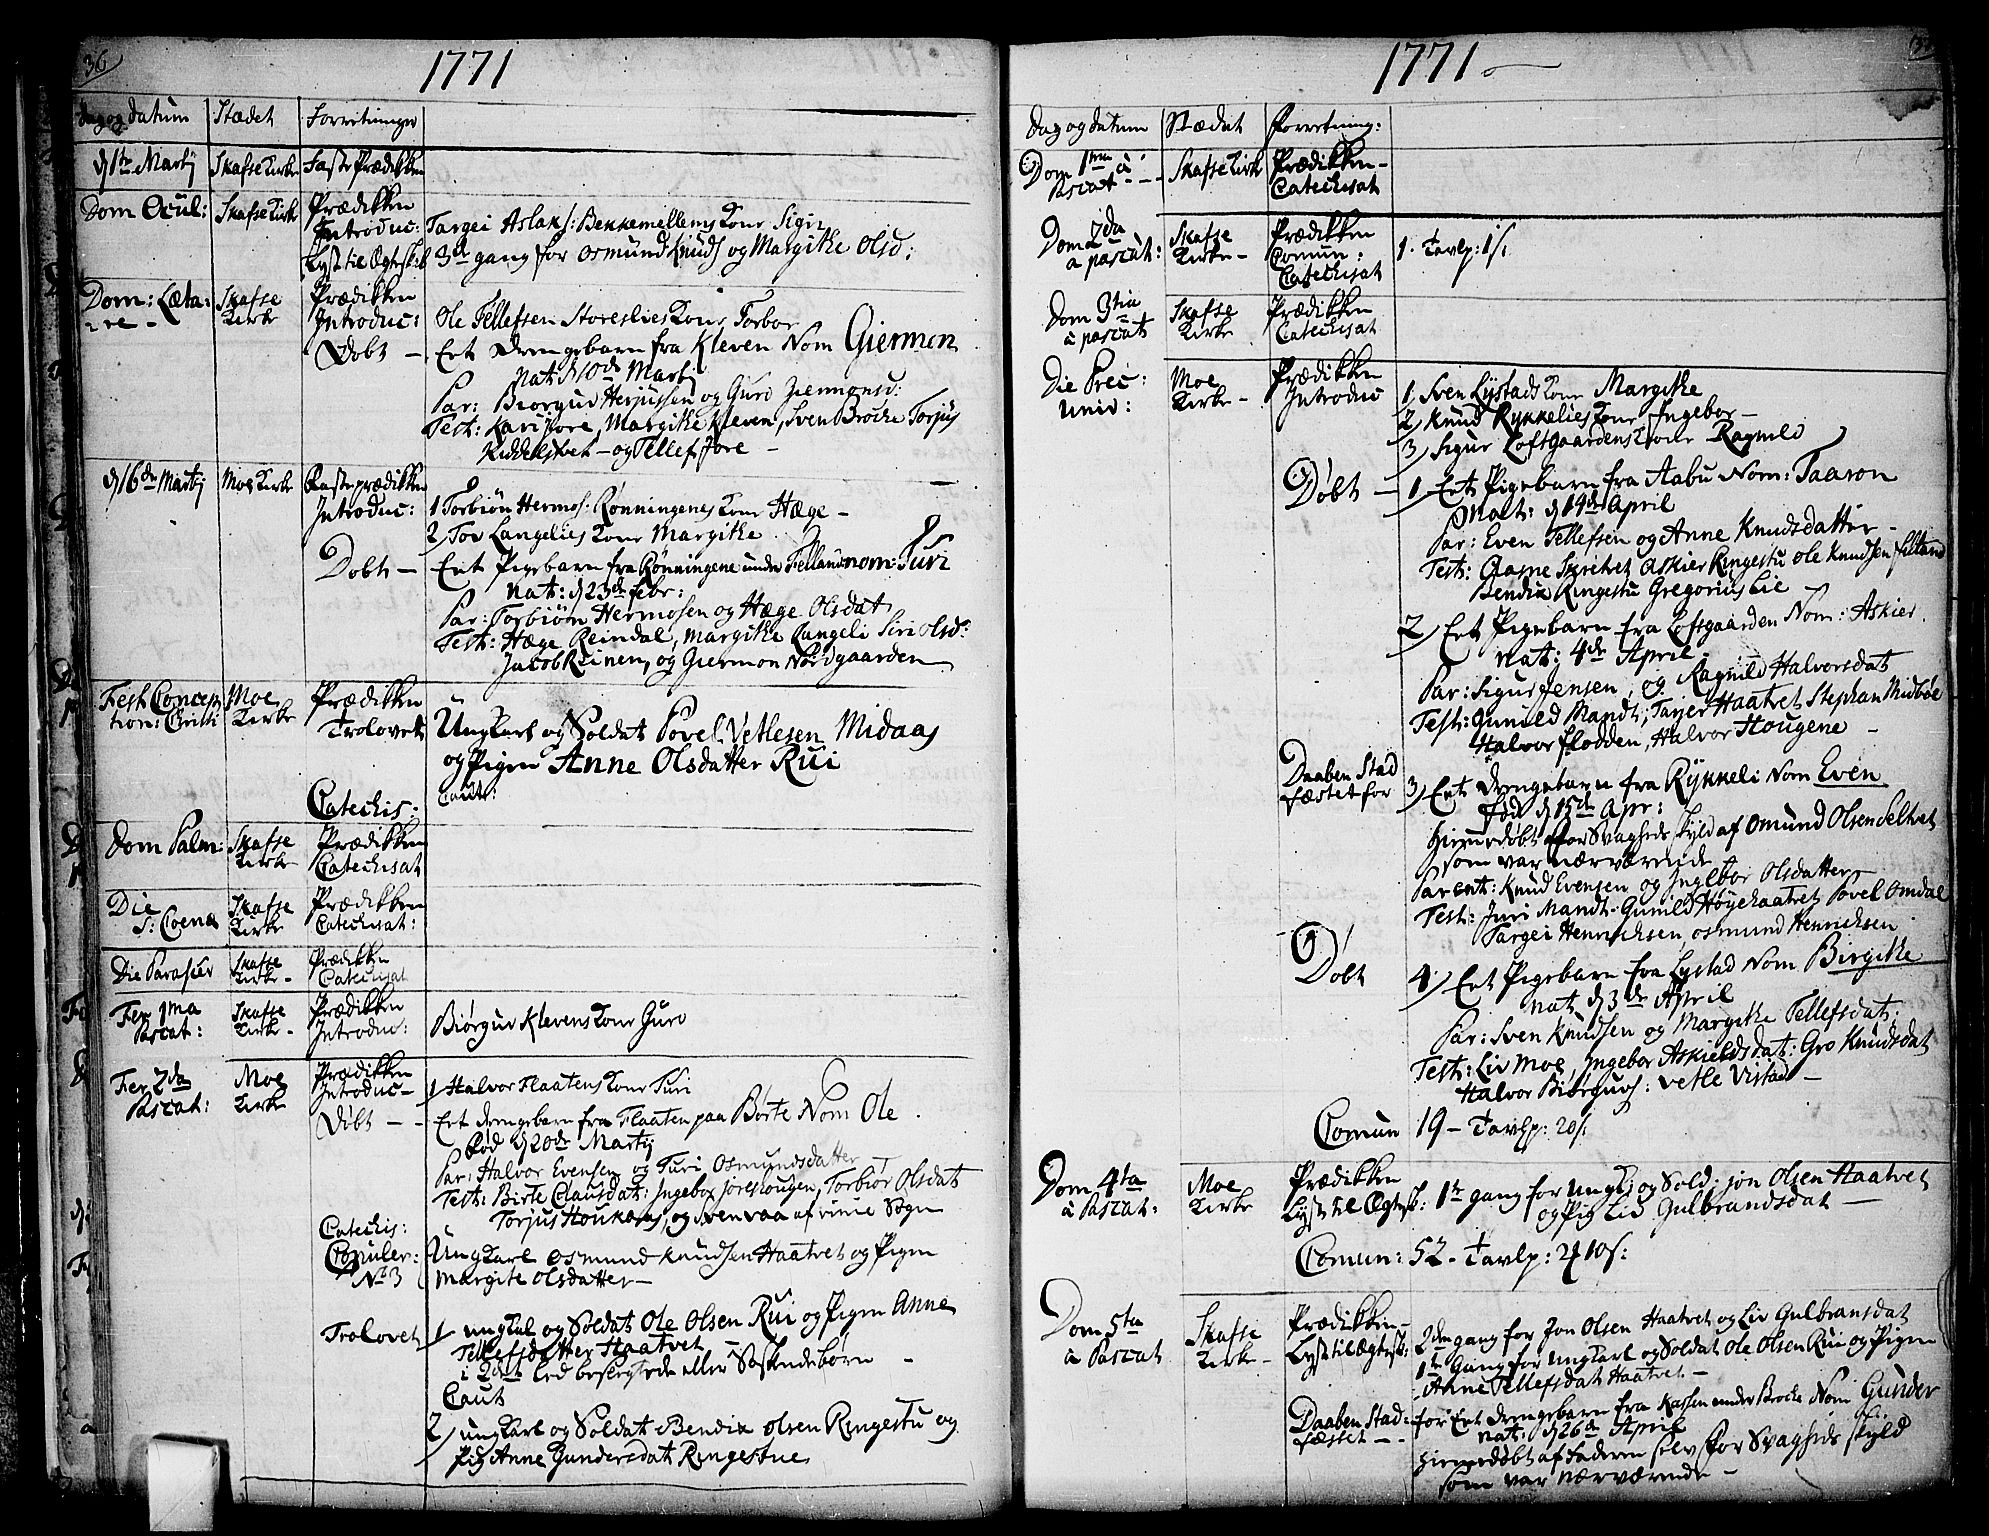 36
1771
Dag og datum Stædet Forretninger
d 1ste Martij Skafse Kirke Faste Prædikken
Dom Ocul: Skafse Kirke Prædikken
Introduc: Targei Aslaks: Bekkemellems Kone Sigri
Lyst til Ægtesk:b 3de gang for Osmund Knuds og Margithe Olsd:
Dom: Læta= Skafse Prædikken
re - Kirke Introduc: Ole Tellefsen Storeslies Kone Torbor
Døbt - Eet Drengebarn fra Kleven Nom Giermon
Nat: d 10de Martij
Par: Biørguv Herjussen og Guro Giermonsd:
Test: Kari Jore, Margithe Kleven, Sven Brocke Torjus
Kiddelstvet - og Tellef Jore -
d 16de Martij Moe Kirke Fasteprædikken
Introduc: 1 Torbiøn Hermos: Rønningenes Kone Hæge -
2/ Tov Langelies Kone Margithe
Døbt - Eet Pigebarn fra Rønningene under Felland nom: Turi
Nat: d 23de febr:
Par: Torbiørn Hermosen og Hæge Olsdat
Test: Hæge Reindal, Margithe Langeli Siri Olsd:
Jacob Reinen, og Giermon Nordgaarden
Fest Concep Moe Prædikken
tion: Christi Kirke Trolovet Ungkarl og Soldat Povel Vetlesen Midaas
og Pigen Anne Olsdatter Rui
Catechis: Caut:
Dom Palm: Skafse Prædikken
Kirke Catechisat
Die Skafse Prædikken
S: Coena Kirke Catechisat:
Die Parasceu Skafse Prædikken
Kirke - Catechisat
Fer 1ma Skafse Prædikken
Pascat: Kirke - Introduc: Biørguv Klevens Kone Guro
Fer 2da Moe Prædikken
Pascat: Kirke Introduc - 1 Halvor Flaatens Kone Turi
Døbt - - Eet drengebarn fra Flaaten paa Børte Nom Ole
Fød d 20de Martij
Par: Halvor Evensen og Turi Osmundsdatter
Test: Birte Clausdat: Ingebor Joreshougen, Torbior Olsdat
Torjus Houkom, og Sven vaa af vinie Sogn
Catechis:
Copuler: Ungkarl Osmund Knudsen Haatvet og Pigen
No 3 Margite Olsdatter -
Trolovet 1 ungkal og Soldat Ole Olsen Rui og Pigen Anne
Tellefsdatter Haatvet
i 2det Led beslegtede eller Søskendebørn -
Caut
2/ ungkarl og Soldat Bendix Olsen Ringestu og
Pig Anne Gundersdat Ringestue
1771
Dag og datum Stædet Forretning:
Dom 1ma à Skafse Kirke Prædikken -
Pascat - - - Catechisat
Dom 2da Skafse Prædikken
a pascat: Kirke - Comun: 1. Tavlp: 1 s:
Catechisat
Dom 3tia Skafse Prædikken
à pascat Kirke Catechisat
Die Prec: Moe Prædikken
univ: Kirke - Introduc 1, Sven Lystads Kone Margithe
2/ Knud Rykkelies Kone Ingebor -
3/ Sigur Loftgaardens Kone Ragnild
Døbt - 1/ Eet Pigebarn fra Aabu Nom: Taaron
Nat: d 19de April
Par: Even Tellefsen og Anne Knudsdatter -
Test: Aasne Skrehet Askier Ringestu Ole Knudsen Felland
Bendix Ringestu Gregorius Lie
2/ Eet Pigebarn fra Loftgaarden Nom: Askier
Nat: 4de April.
Par: Sigur Jensen, og Ragnild Halvorsdat
Test: Gunild Mandt, Tarjer Haatvet Stephan Midbøe
Halvor Flodden, Halvor Hougene -
Daaben Stad 3/ Eet drengebarn fra Rykkeli Nom Even
fæstet for fød d 15de Apr:
hiemedøbt for Svagheds skyld af Omund Olsen Seltvet
som var nærværende
Parent: Knud Evensen og Ingebor Olsdatter
Test: Juri Mandt - Gunild Høyehaatvet Povel Omdal
Targei Henrichsen Osmund Henrichsen
Døbt 4/ Eet Pigebarn fra Lystad Nom Birgithe
Nat d 3de April
Par: Sven Knudsen og Margithe Tellefsdat:
Test: Liv Moe, Ingebor Askieldsdat: Gro Knudsdat
Halvor Biørguvs: Vetle Vistad -
Comun 19 - Tavlp: 20 s:
Dom 4ta Moe Prædikken
à Pascat: Kirke Lyst til Ægtesk: 1te gang for Ungk: og Sold: Jon Olsen Haatvet
og Pig Liv Gulbrandsdat -
Comun: 52 - Tavlp: 2 10 s:
Dom 5ta Skafse Prædikken -
à Pascat Kirke - Lyst til Ægtesk: 2den gang for Jon Olsen Haatvet og Liv Gulbransdat
1te Gang for Ungkarl og Soldat Ole Olsen Rui og Pigen
Anne Tellefsdat Haatvet -
Daaben Stad: for Eet drengebarn fra Kassen under Brocke Nom Gunder
fæstet - - nat: d 26de April
hiemedøbt af Faderen selv for Svagheds skyld
som var nærværende -